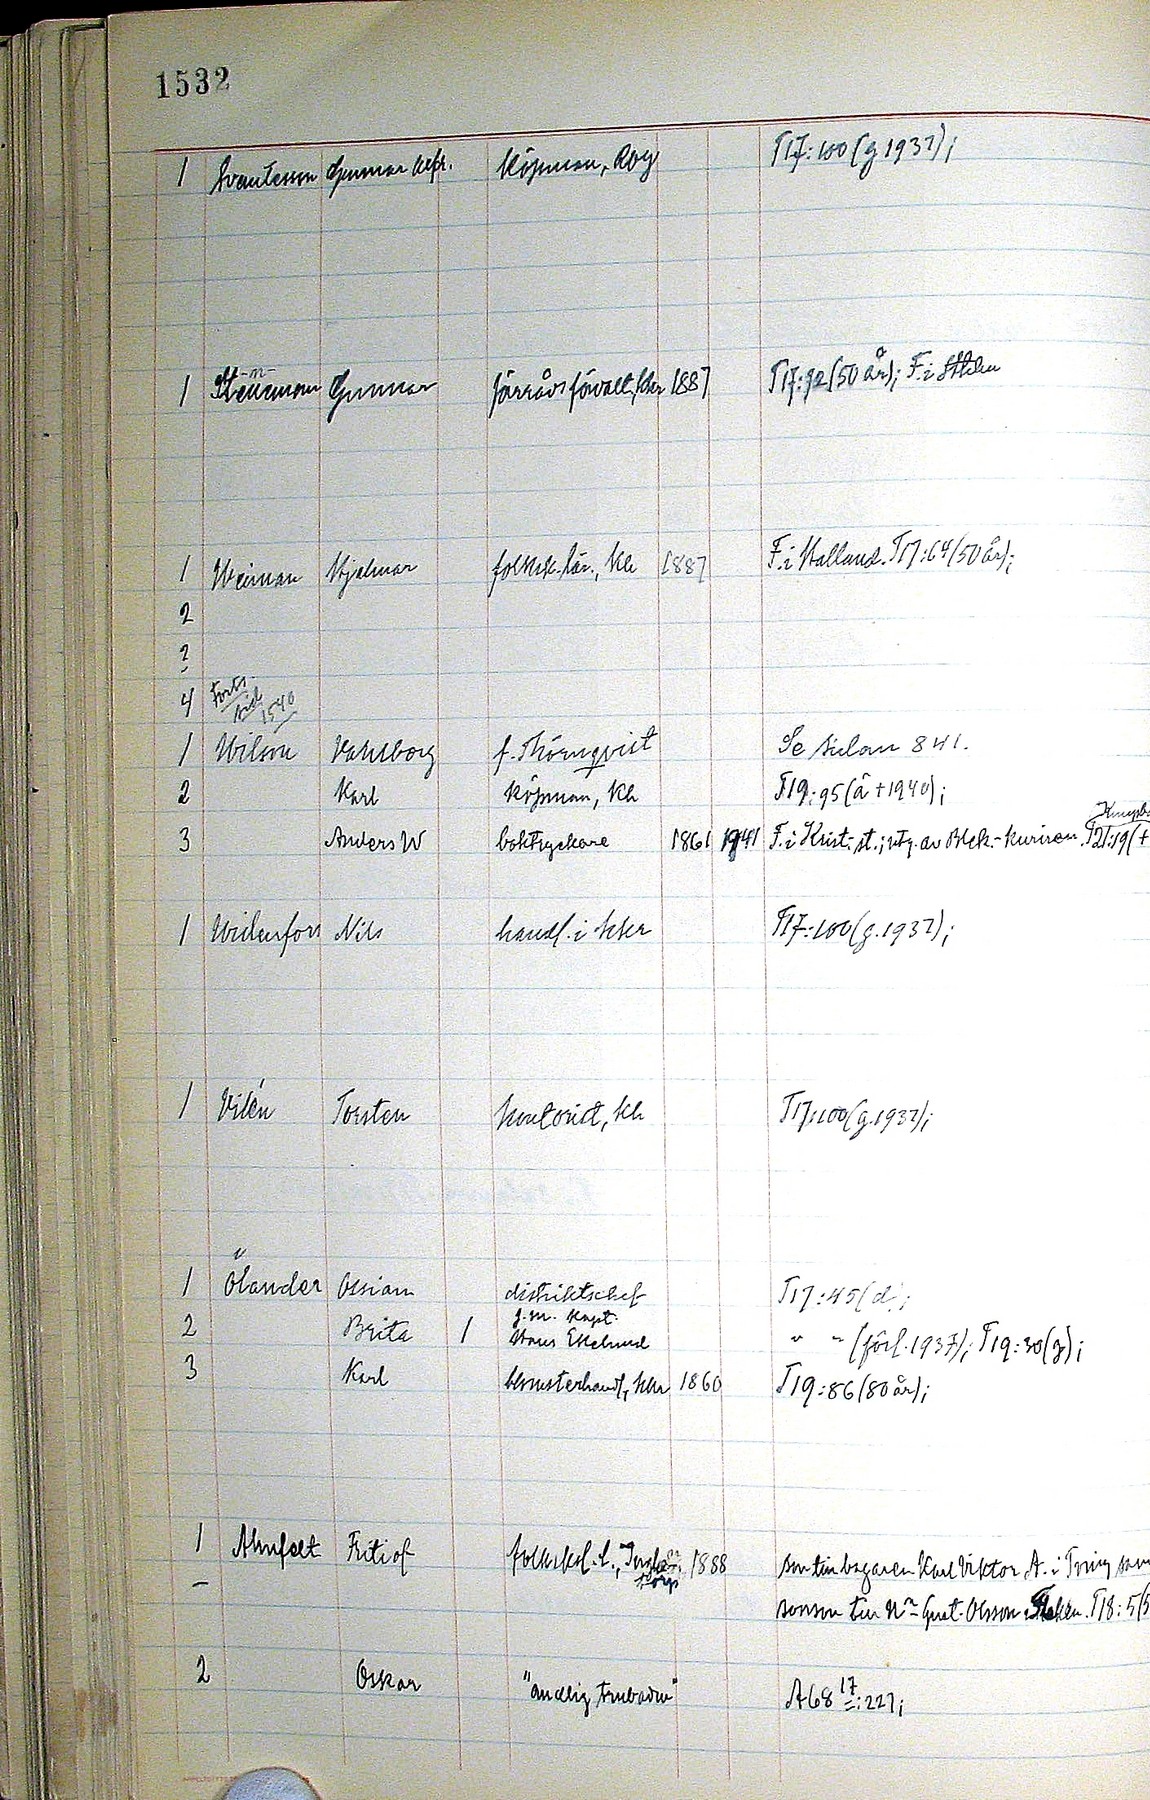 1532
1 Svantesson Gunnar köpman, Rby T17:100 (g 1937);
-n-
1 Gunnar förrådsförvalt, Kkr 1887 T17:92 (50 år); F. i Sthlm
1 Weiman Hjalmar folksk.lär., Kh 1887 F. i Halland. T17:64 (50 år);
2
3
4 Forts.
sid
1540
1 Wilson Valborg f. Thörnqvist Se sidan 841.
2 Karl köpman, Kh T19:95 (å +1940);
3 Anders W boktryckare 1861 1941 F. i Krist:st.; utg. av Blek.-kuriren. T21:19 (+
1 Widenfors Nils handl. i Kkr T17:100 (g. 1937);
1 Vilén Torsten kontorist, Kh T17:100 (g. 1937);
1 Ölander Ossian distriktschef T17:45 (d);
2 Brita 1 g.m. kapt. Hans Ekelund " " (förl. 1937); T19:30 (g);
3 Karl blomsterhandl, Kkr 1860 T19:86 (80 år);
1 Almfelt Fritiof folkskol. l., 1888 son till bagaren Karl Viktor A. i Tving
– sonson till Gust. Olsson i T18:5 (5
2 Oskar "andlig trubadur" A68 17:227;